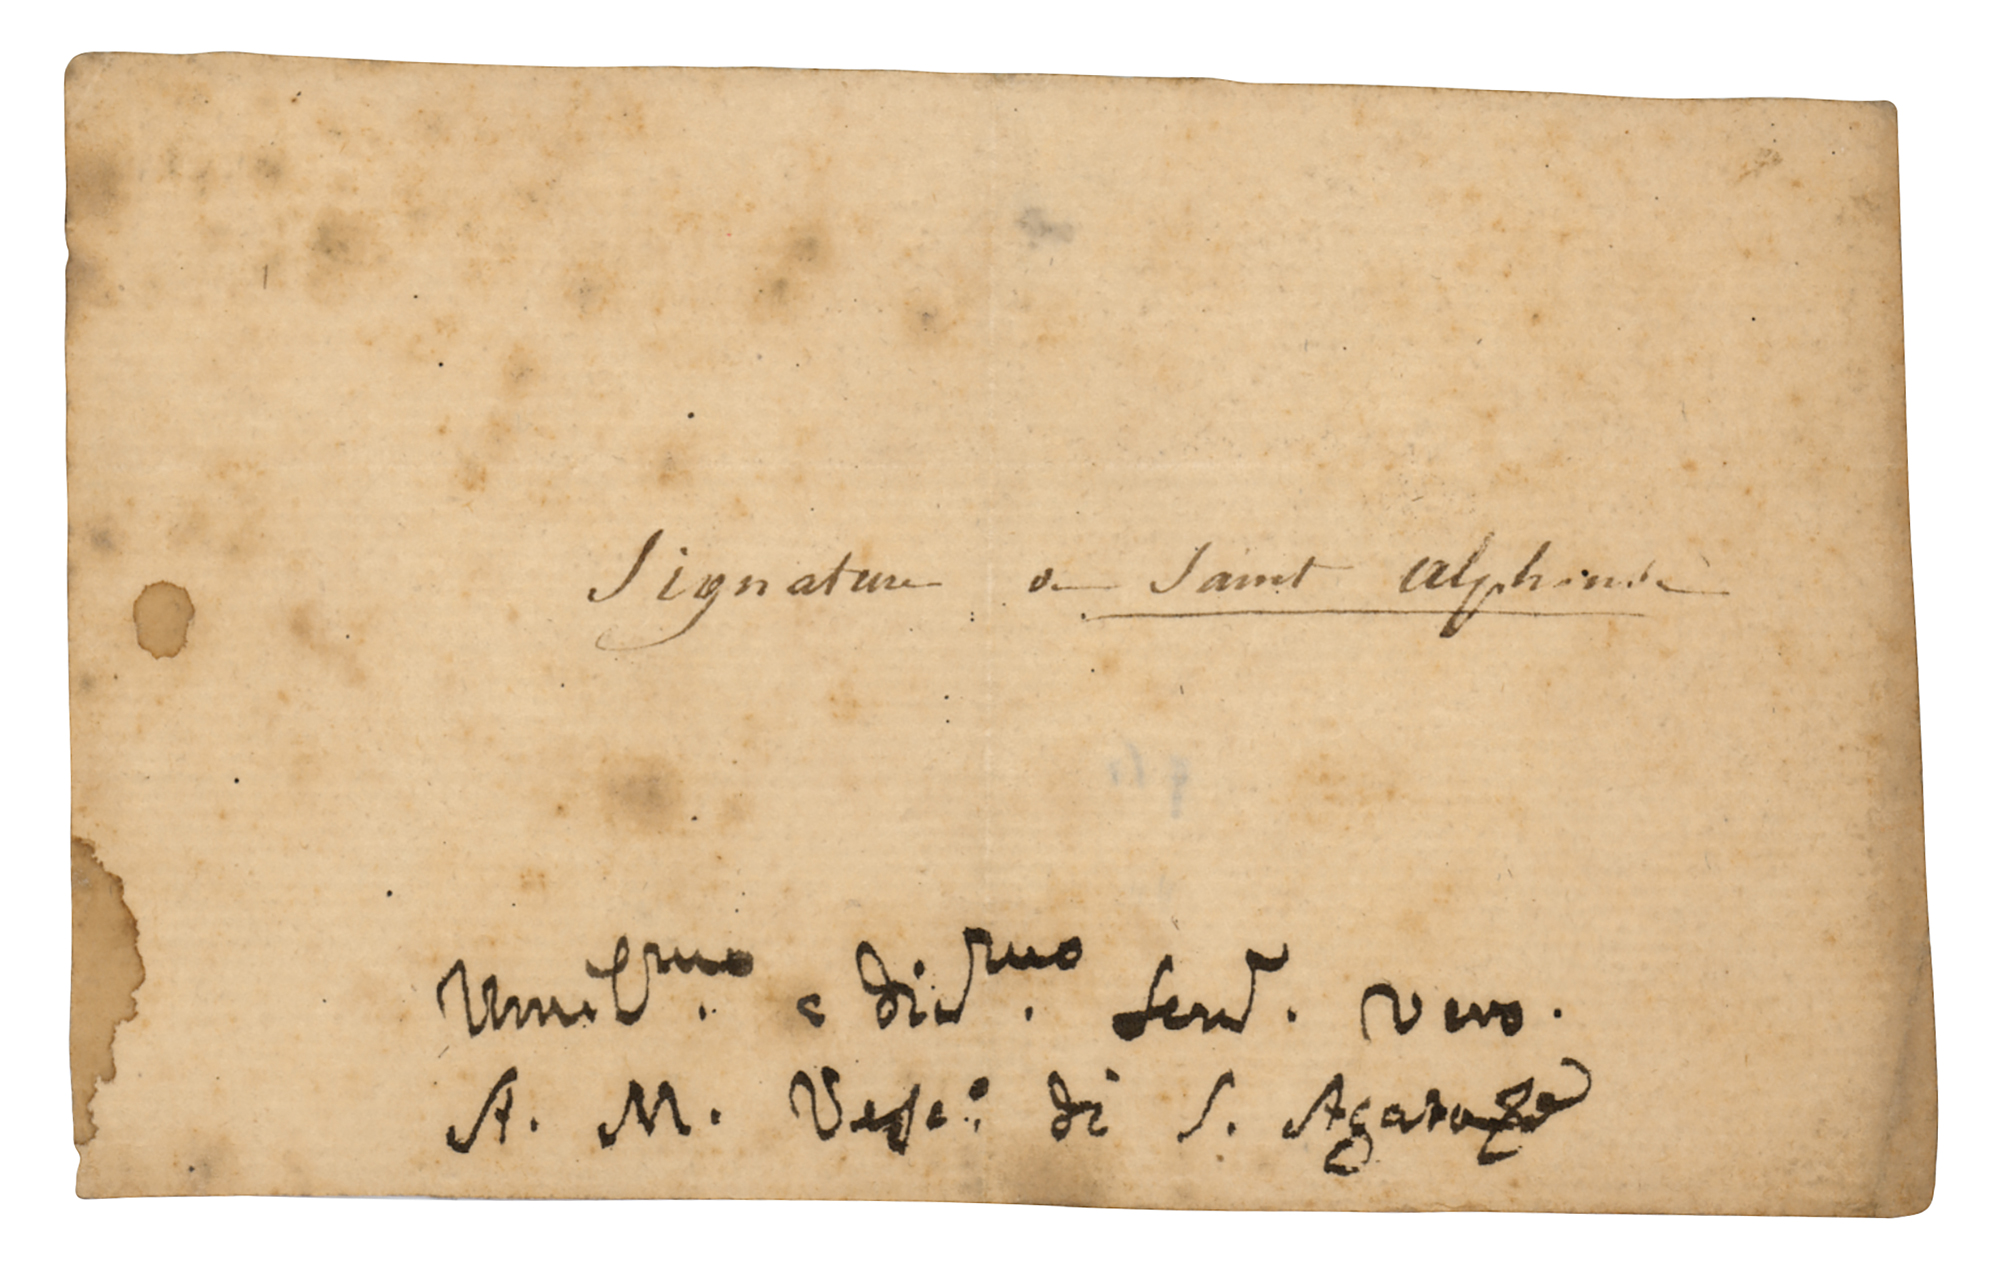 Signature de Saint Alphonse
Umil.mo e div.mo Serv. vero.
A. M. Vesc.o di S. Agata